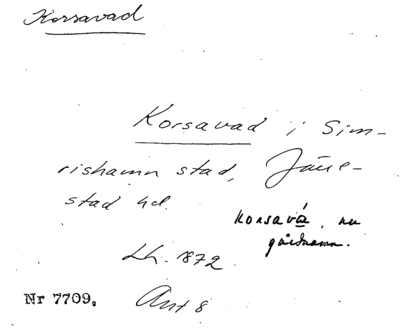 Korsavad
Korsavad i Sim-
rishamn stad, Järre-
stad hd.
Korsavá, nu
gårdnamn.
Lh. 1872.
Nr 7709. Ant 8